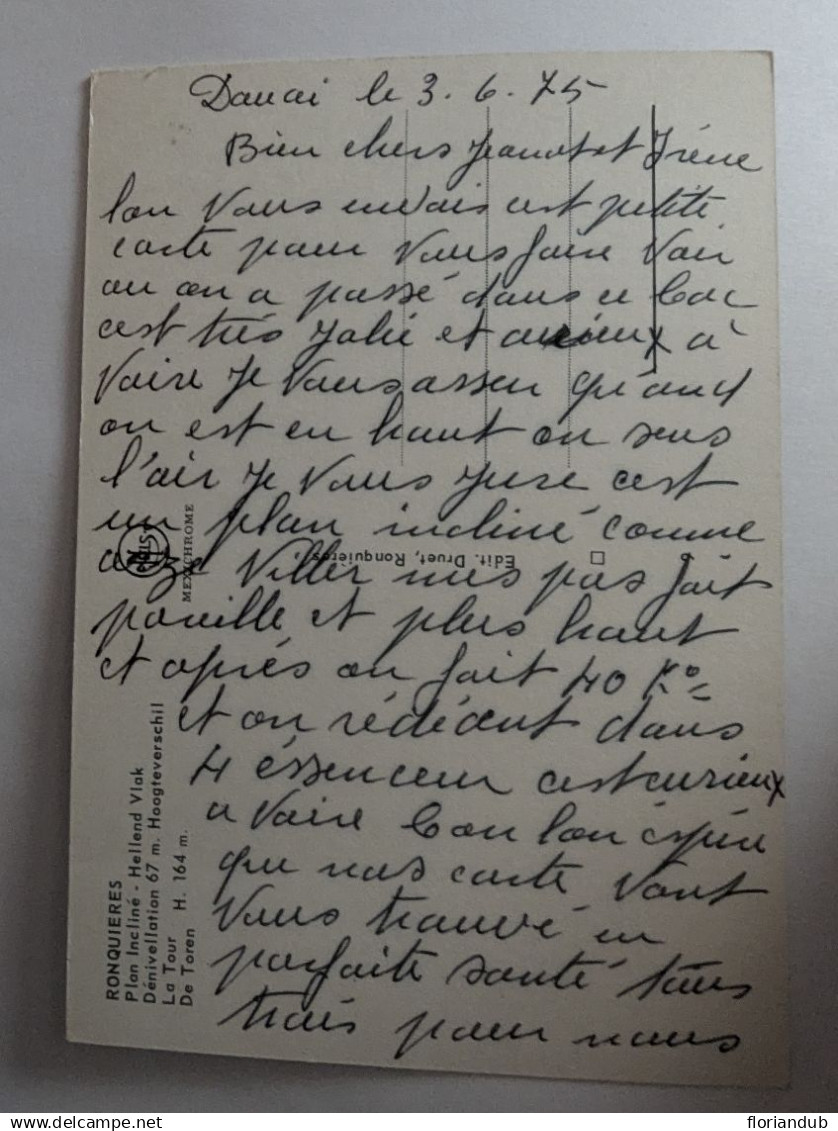 Douai le 3. 6. 75
Bien chers Jeanot et Irène
lon vous envais cest petite
carte pour vous faire voir
ou on a passé dans ce bac
cest très jolie et curieux à
voire je vous assen quand
on est en haut on sens
l'air je vous jure cest
un plan incliné comme
Viller mes pas fait
pareille et plus haut
et après on fait 40 Ko
et on rédécent dans
4 éssenceur cest curieux
a voire bon lon éspère
que nos carte vont
vous trouvé en
parfaite santé tous
trois pour nous
RONQUIERES
Plan Incliné - Hellend Vlak
Dénivellation 67 m. Hoogteverschil
La Tour H. 164 m.
De Toren
MEXICHROME
Edit. Druet, Ronquières.
delcampe.net
floriandub